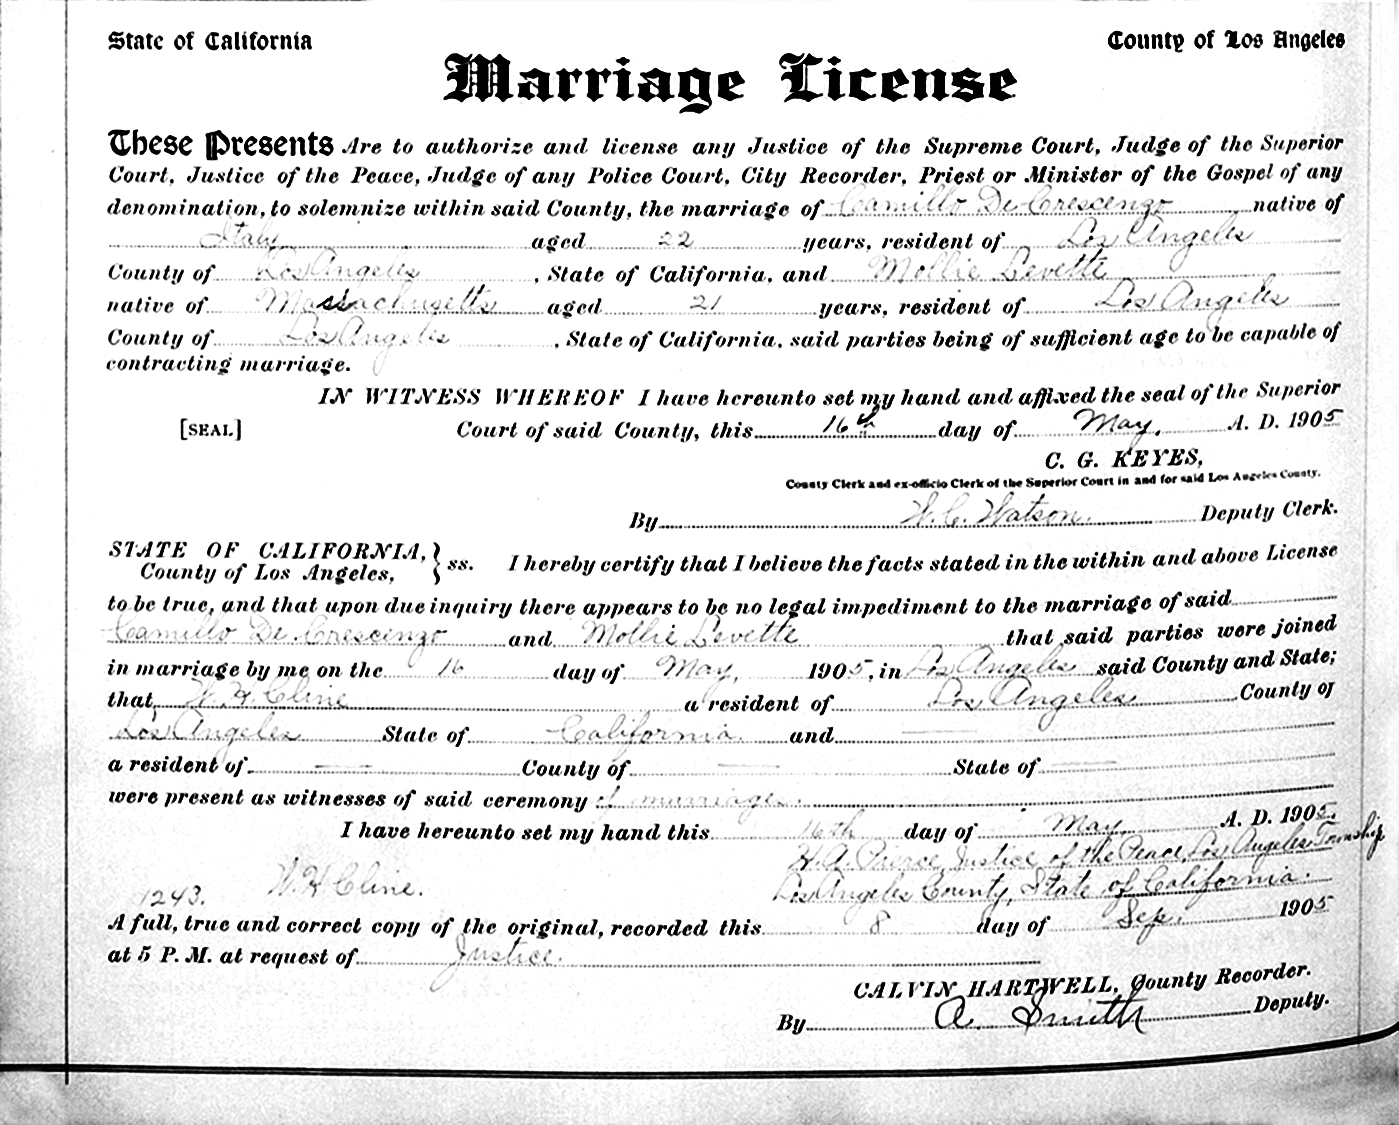 State of California County of Los Angeles
Marriage License
These Presents Are to authorize and license any Justice of the Supreme Court, Judge of the Superior
Court, Justice of the Peace, Judge of any Police Court, City Recorder, Priest or Minister of the Gospel of any
denomination, to solemnize within said County, the marriage of Camillo De Crescenzo native of
Italy aged 22 years, resident of Los Angeles
County of Los Angeles, State of California, and Mollie Levette
native of Massachusetts aged 21 years, resident of Los Angeles
County of Los Angeles, State of California, said parties being of sufficient age to be capable of
contracting marriage.
IN WITNESS WHEREOF I have hereunto set my hand and affixed the seal of the Superior
[SEAL] Court of said County, this 16th day of May, A. D. 1905
C. G. KEYES,
County Clerk and ex-officio Clerk of the Superior Court in and for said Los Angeles County.
By W. C. Watson Deputy Clerk.
STATE OF CALIFORNIA, } ss. I hereby certify that I believe the facts stated in the within and above License
County of Los Angeles,
to be true, and that upon due inquiry there appears to be no legal impediment to the marriage of said
Camillo De Crescenzo and Mollie Levette that said parties were joined
in marriage by me on the 16 day of May, 1905, in Los Angeles said County and State;
that W. H. Cline a resident of Los Angeles County of
Los Angeles State of California and —
a resident of — County of — State of —
were present as witnesses of said ceremony of marriage.
I have hereunto set my hand this 16th day of May A. D. 1905.
H. A. Pierce, Justice of the Peace, Los Angeles Township
1243. W. H. Cline. Los Angeles County, State of California.
A full, true and correct copy of the original, recorded this 8 day of Sep. 1905
at 5 P. M. at request of Justice.
CALVIN HARTWELL, County Recorder.
By A. Smith Deputy.